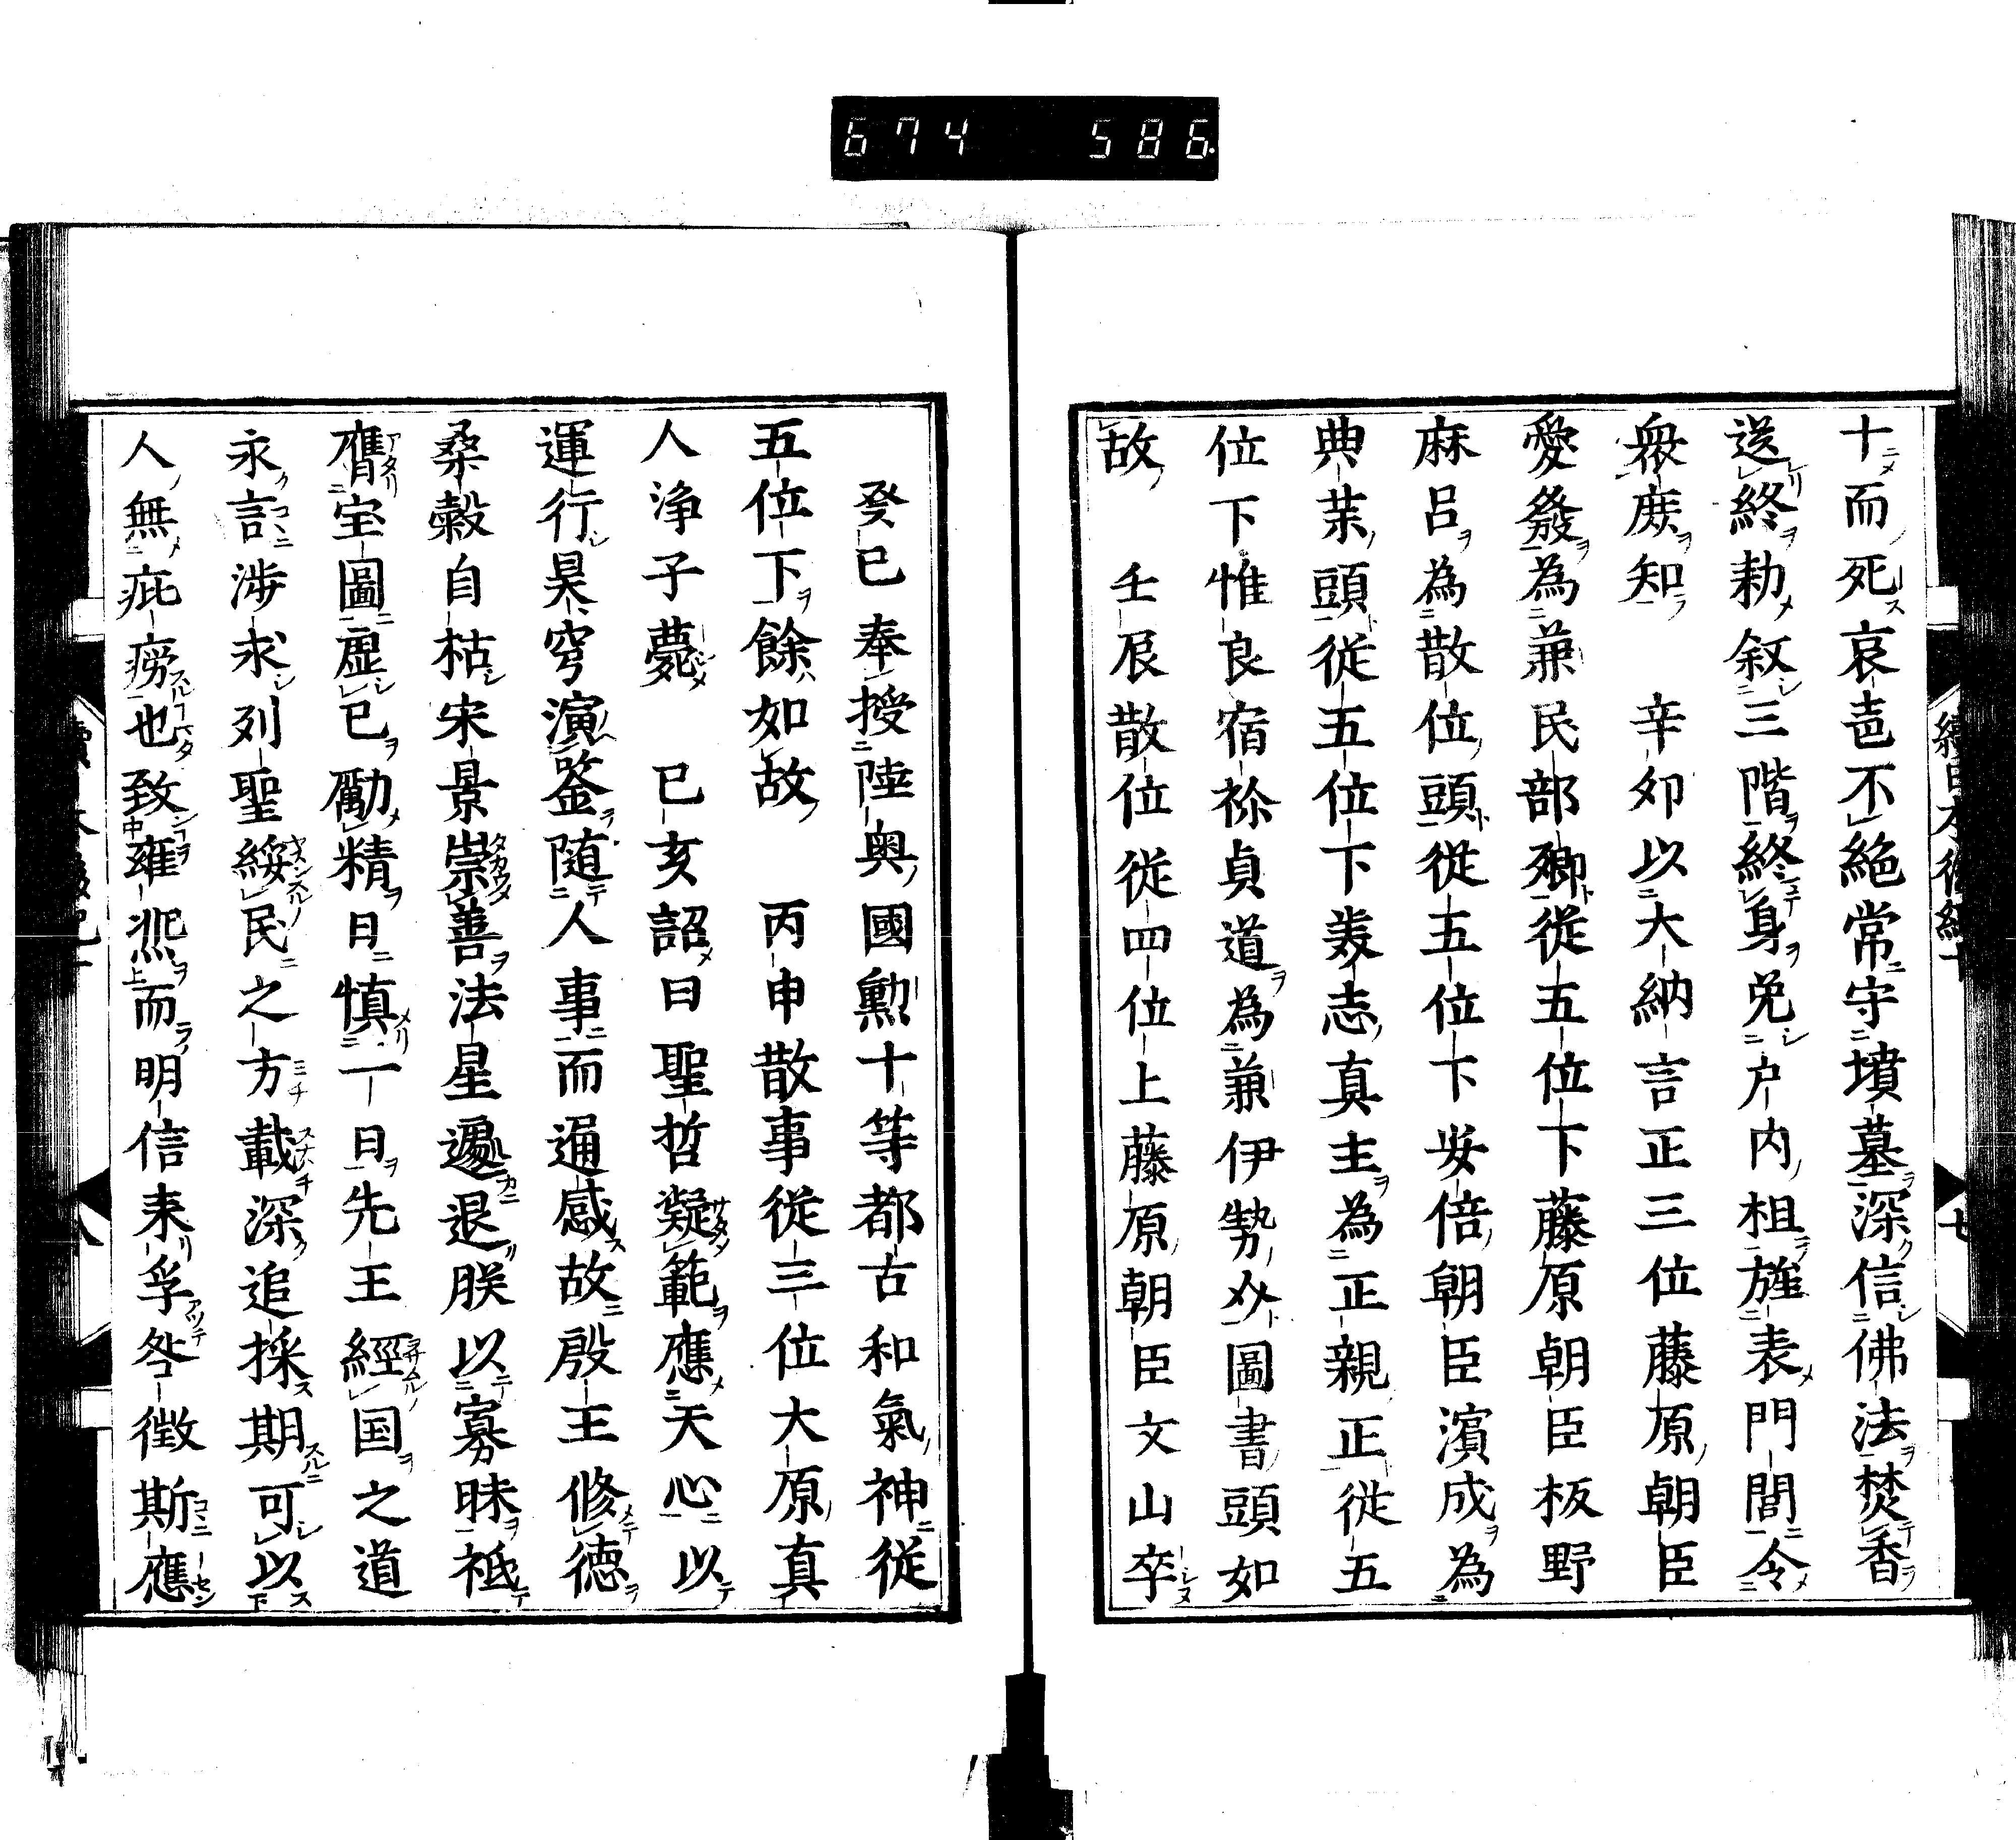 674 586
十而死哀壴不絶常守墳墓深信佛法焚香
送終勑叙三階終身免户内租旌表門閭令
衆庶知　辛夘以大納言正三位藤原朝臣
愛發為兼民部卿從五位下藤原朝臣板野
麻呂為散位頭從五位下安倍朝臣濵成為
典藥頭從五位下美志真主為正親正從五
位下惟良宿祢貞道為兼伊勢介圖書頭如
故　壬辰散位從四位上藤原朝臣文山卒
癸巳奉授陸奥國勲十等都古和氣神從
五位下餘如故　丙申散事從三位大原真
人浄子薨　己亥詔曰聖哲凝範應天心以
運行昊穹演鑒随人事而通感故殷王修德
桑穀自枯宋景崇善法星遽退朕以寡昧祗
膺宝圖虚已勵精日慎一日先王經国之道
永言渉求列聖綏民之方載深追採期可以
人無疵癆也致雍熙而明信未孚咎徴斯應